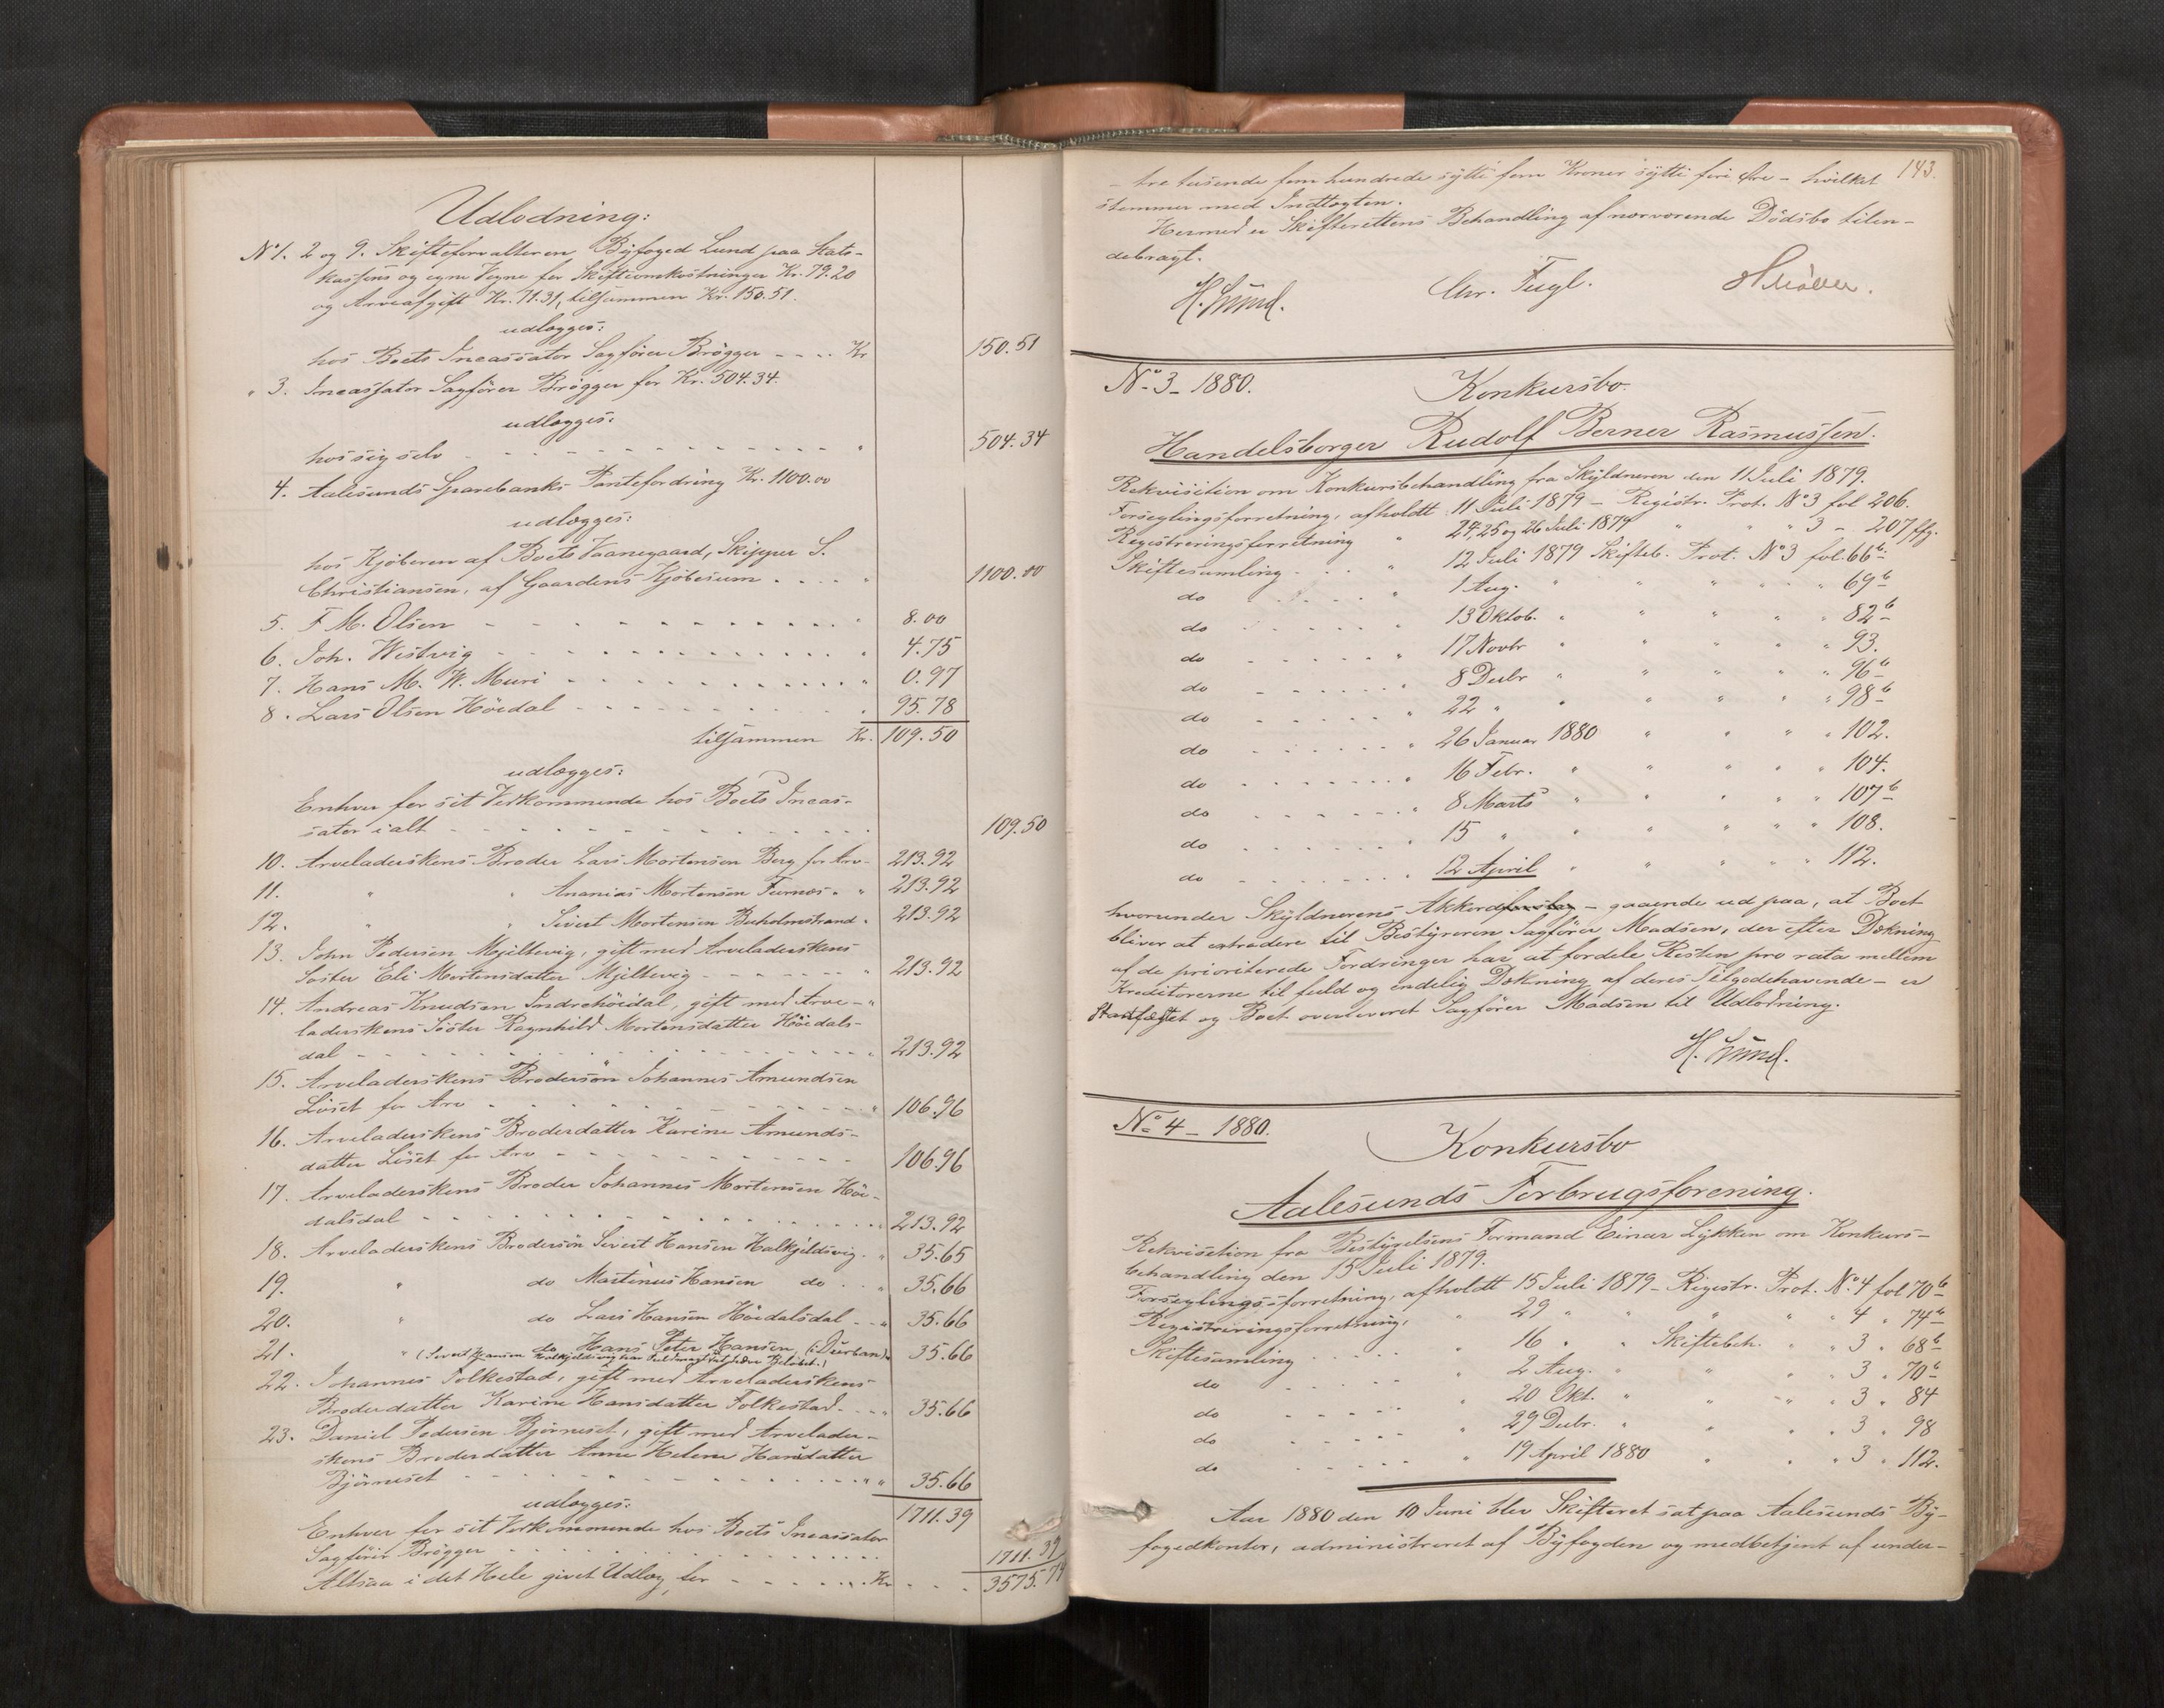 Udlodning:
No 1. 2 og 9. Skifteforvalteren Byfoged Lund paa Stats-
kassens og egne Vegne for Skifteomkostninger Kr. 79.20
og Arveafgift Kr. 71.31, tilsammen Kr. 150.51.
udlægges:
hos Boets Incassator Sagfører Brøgger - - - - Kr 150.51
" 3. Incassator Sagfører Brøgger for Kr. 504.34.
udlægges:
hos sig selv - - - - - - - - " 504.34
4. Aalesunds Sparebanks Pantefordring Kr. 1100.00
udlægges:
hos Kjøberen af Boets Vaanegaard, Skipper S.
Christiansen, af Gaardens Kjøbesum . . . . " 1100.00
5. F M. Olsen - - - - - - - - " 8.00
6. Joh. Wistvig - - - - - - - - " 4.75
7. Hans M. W. Muri - - - - - - - - " 0.97
8. Lars Olsen Höidal - - - - - - - - " 95.78
tilsammen Kr. 109.50
udlægges:
Enhver for sit Vedkommende hos Boets Incas-
sator ialt - - - - - - - - 109.50
10. Arveladerskens Broder Lars Mortensen Berg for Arv - 213.92
11. " " Ananias Mortensen Furnæs - " 213.92
12. " " Sivert Mortensen Buholmstrand " 213.92
13. John Pedersen Mjeltevig, gift med Arveladerskens
Søster Eli Mortensdatter Mjeltevig - - - - - - " 213.92
14. Andreas Knudsen Indrehöidal, gift med Arve- "
laderskens Søster Ragnhild Mortensdatter Höidals-
dal - - - - - - - - " 213.92
15. Arveladerskens Brodersön Johannes Amundsen
Löset for Arv - - - - - - - - " 106.96
16. Arveladerskens Broderdatter Karine Amunds-
datter Löset for Arv - - - - - - - - 106.96
17. Arveladerskens Broder Johannes Mortensen Höi-
dalsdal - - - - - - - - " 213.92
18. Arveladerskens Brodersön Sivert Hansen Halkjeldsvig - " 35.65
19. " do Martinus Hansen do . . " 35.66
20. " do Lars Hansen Höidalsdal - - " 35.66
21. " do Hans Peter Hansen (i Durban) " 35.66
(Sivert Hansen Halkjeldsvig har Fuldmagt
22. Johannes Folkestad, gift med Arveladerskens
Broderdatter Karine Hansdatter Folkestad - - - " 35.66
23. Daniel Pedersen Björneset, gift med Arvelader-
skens Broderdatter Anne Helene Hansdatter
Björneset - - - - - - - - " " 35.66
udlægges: 1711.39
Enhver for sit Vedkommende hos Boets Incassator
Sagfører Brøgger - - - - - - - - 1711.39
Altsaa i det Hele givet Udlæg for - - - - - - Kr - - - 3575.74
143.
- tre tusende fem hundrede sytti fem Kroner sytti fire Øre - hvilket
stemmer med Indtægten.
Hermed er Skifterettens Behandling af nærværende Dödsbo tilen-
debragt.
H. Lund. Chr. Fugl.
No 3 - 1880. Konkursbo.
Handelsborger Rudolf Berner Rasmussen.
Rekvisition om Konkursbehandling fra Skyldneren den 11 Juli 1879.
Forseglingsforretning, afholdt 11 Juli 1879 - Registr. Prot. No 3 fol 206.
Registreringsforretning " 24, 25 og 26 Juli 1879 " " " 3 - 207 flg.
Skiftesamling - - - " 12 Juli 1879 Skifteb. Prot. No 3 fol. 66b
do - - - - " 1 Aug. " " " " 69b
do - - - - " 13 Oktob. " " " " 82b
do - - - - " 17 Novbr " " " " 93.
do - - - - " 8 Decbr " " " " 96b
do - - - - " 22 " " " " " 98b
do - - - - " 26 Januar 1880 " " " " 102.
do - - - - " 16 Febr. " " " " 104.
do - - - - " 8 Marts " " " " 107b
do - - - - " 15 " " " " " 108.
do - - - - " 12 April " " " " 112.
hvorunder Skyldnerens Akkordforslag - gaaende ud paa, at Boet
bliver at extradere til Bestyreren Sagfører Madsen, der efter Dækning
af de prioriterede Fordringer har at fordele Resten pro rata mellem
Kreditorerne til fuld og endelig Dækning af deres Tilgodehavende - er
Stadfæstet og Boet overleveret Sagfører Madsen til Udlodning.
H. Lund.
No 4 - 1880. Konkursbo
Aalesunds Forbrugsforening.
Rekvisition fra Bestyrelsens Formand Einar Lykken om Konkurs-
behandling den 15 Juli 1879.
Forseglingsforretning, afholdt 15 Juli 1879 - Registr. Prot. No. 4 fol 70b
Registreringsforretning, " 29 " " " " " 4 " 74b
Skiftesamling - - - - " 16 " " Skiftebeh. " " 3 " 68b
do - - - - " 2 Aug. " " " 3 " 70b
do - - - - " 20 Okt. " " " 3 " 84
do - - - - " 29 Decbr. " " " 3 " 98
do - - - - " 19 April 1880 " " " 3 " 112.
Aar 1880 den 10 Juni blev Skifteret sat paa Aalesunds By-
fogedkontor, administreret af Byfogden og medbetjent af under-